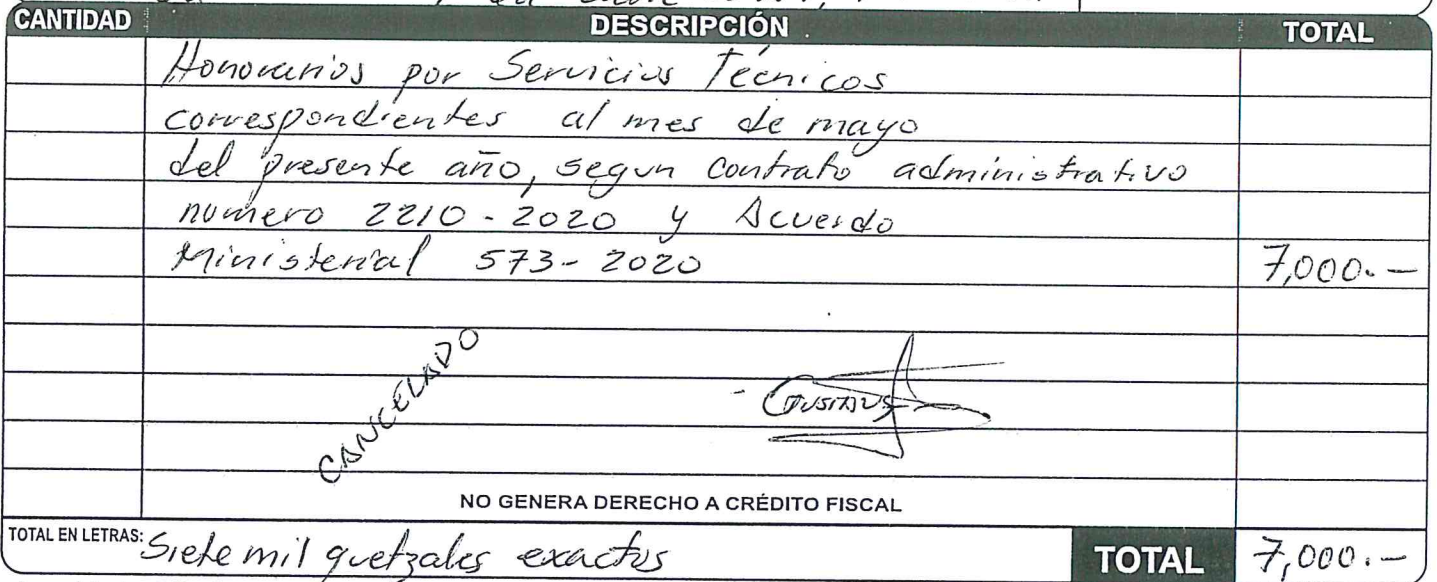 CANTIDAD DESCRIPCIÓN TOTAL
Honorarios por Servicios Técnicos
correspondientes al mes de mayo
del presente año, segun contrato administrativo
numero 2210-2020 y Acuerdo
Ministerial 573-2020 7,000.-
CANCELADO
NO GENERA DERECHO A CRÉDITO FISCAL
TOTAL EN LETRAS: Siete mil quetzales exactos TOTAL 7,000.-